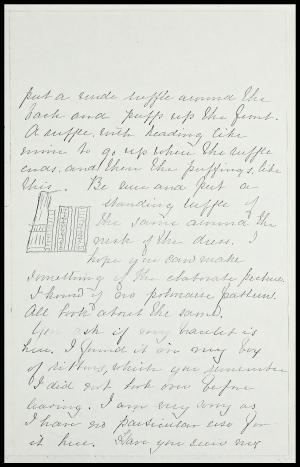 put a wide ruffle around the
back and puffs up the front.
A ruffle with heading like
mine to go up when the ruffle
ends, and then the puffings, like
this. Be sure and put a
standing ruffle of
the same around the
neck of the dress. I
hope you can make
something of the elaborate picture.
I know of no polonaise pattern.
All look about the same.
You ask if my bracelet is
here. I found it in my box
of ribbons, which you remember
I did not look over before
leaving. I am very sorry as
I have no particular use for
it here. Have you seen my